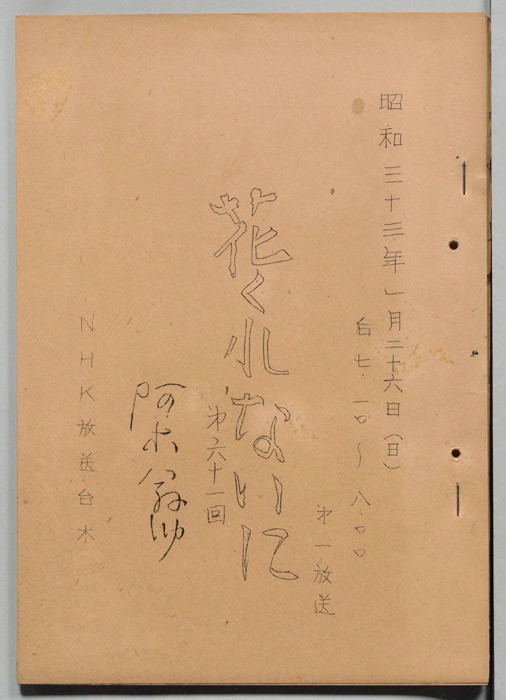 昭和三十三年一月二十六日（日）
自七・一〇～八・〇〇
第一放送
花くれないに
第六十一回
阿木翁助
NHK放送台本